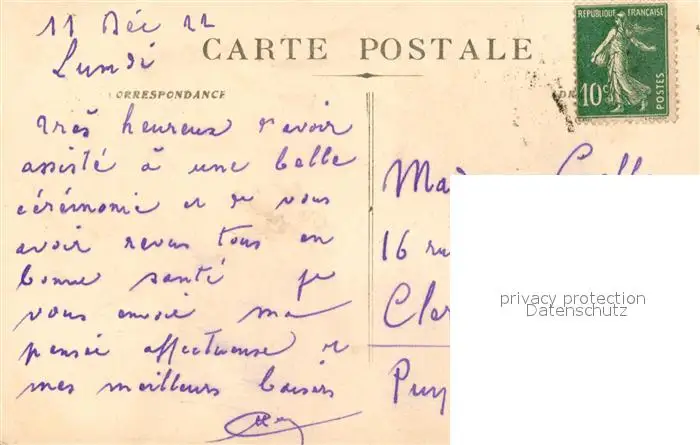 11 Déc 22
Lundi
CARTE POSTALE
RÉPUBLIQUE FRANÇAISE
10c
POSTES
CORRESPONDANCE
très heureux d'avoir
assisté à une belle
cérémonie et de vous
avoir revus tous en
bonne santé je
vous envoie ma
pensée affectueuse et
mes meilleurs baisers
16 ru
Cler
Puy
privacy protection
Datenschutz